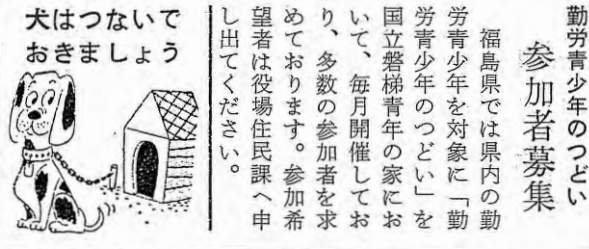 勤労青少年のつどい
参加者募集
福島県では県内の勤
労青少年を対象に「勤
労青少年のつどい」を
国立磐梯青年の家にお
いて、毎月開催してお
り、多数の参加者を求
めております。参加希
望者は役場住民課へ申
し出てください。
犬はつないで
おきましょう